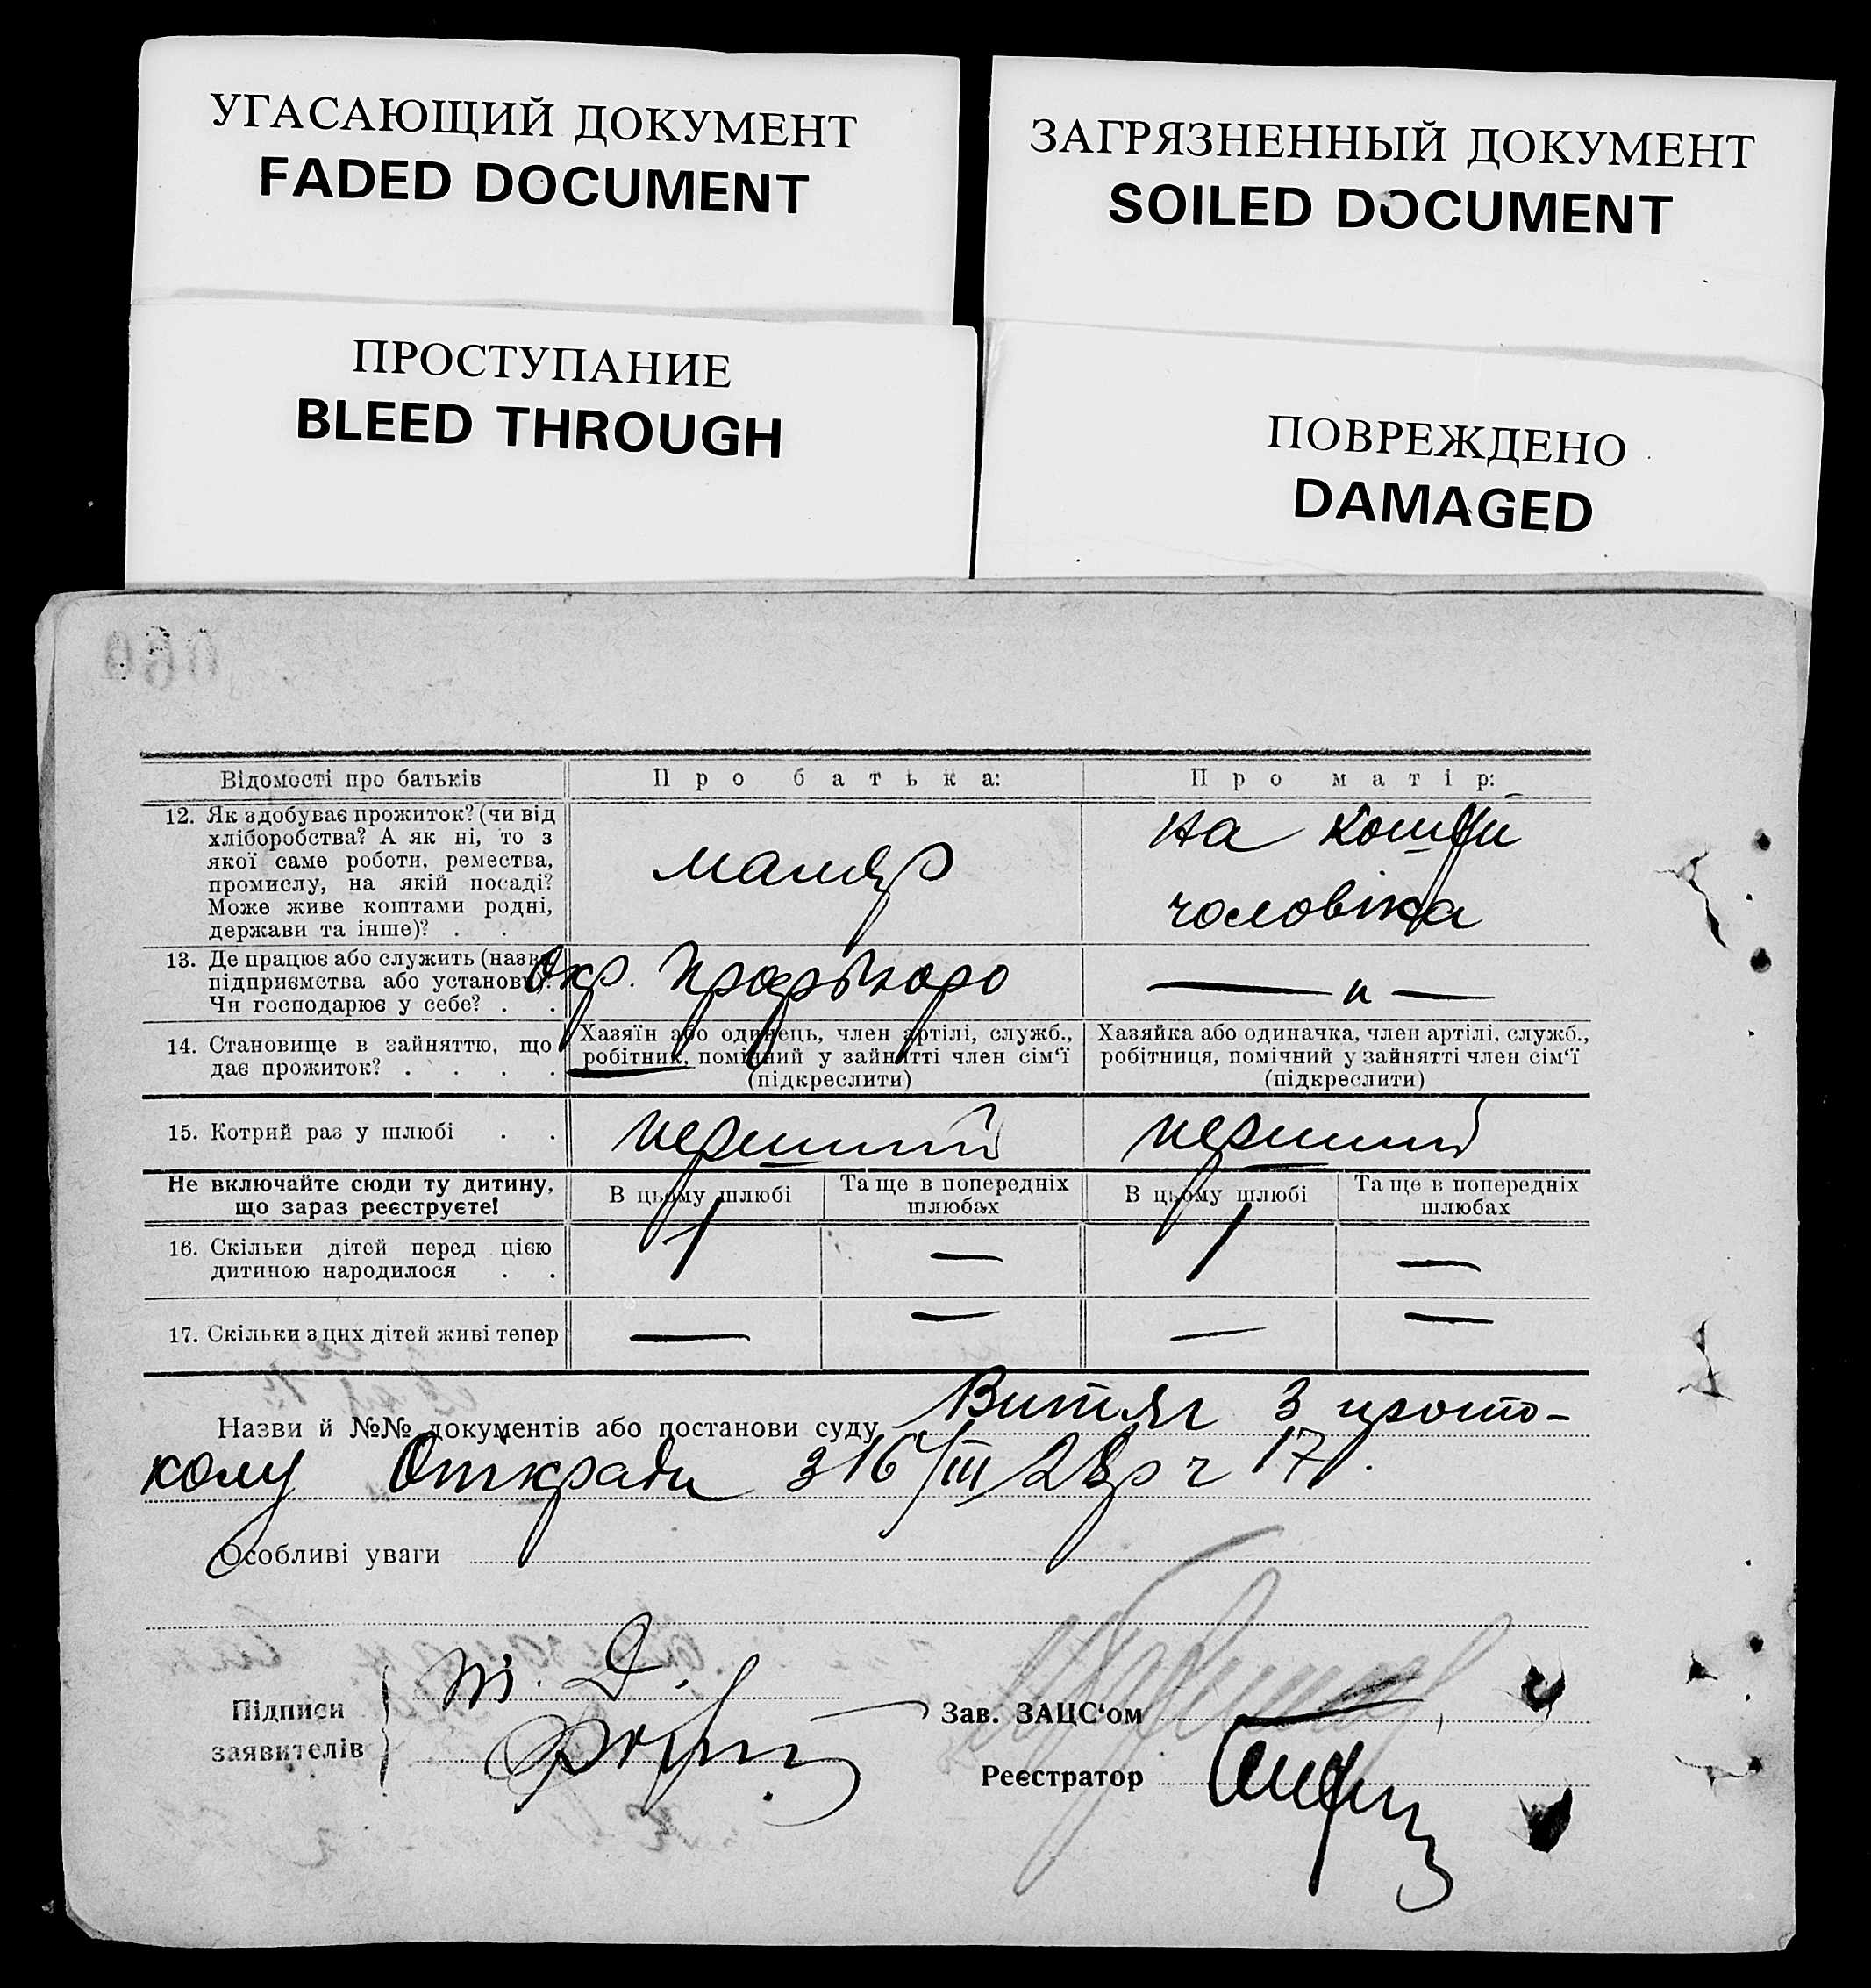 УГАСАЮЩИЙ ДОКУМЕНТ
FADED DOCUMENT
ЗАГРЯЗНЕННЫЙ ДОКУМЕНТ
SOILED DOCUMENT
ПРОСТУПАНИЕ
BLEED THROUGH
ПОВРЕЖДЕНО
DAMAGED
Відомості про батьків
Про батька:
Про матір:
12. Як здобуває прожиток? (чи від
хліборобства? А як ні, то з
якої саме роботи, ремества,
промислу, на якій посаді?
Може живе коштами родні,
держави та інше)? . .
маляр
на кошти
чоловіка
13. Де працює або служить (назва
підприємства або установи)?
Чи господарює у себе? . .
Окр. Профбюро
— „ —
14. Становище в зайняттю, що
дає прожиток? . . . .
Хазяїн або одинець, член артілі, служб.,
робітник, помічний у зайнятті член сім‘ї
(підкреслити)
Хазяйка або одиначка, член артілі, служб.,
робітниця, помічний у зайнятті член сім‘ї
(підкреслити)
15. Котрий раз у шлюбі . .
перший
перший
Не включайте сюди ту дитину,
що зараз реєструєте!
В цьому шлюбі
Та ще в попередніх
шлюбах
В цьому шлюбі
Та ще в попередніх
шлюбах
16. Скільки дітей перед цією
дитиною народилося . .
1 — 1 —
17. Скільки з цих дітей живі тепер
— — — —
Назви й №№ документів або постанови суду Витяг з прото-
колу з 16/III 28р ч 17.
Особливі уваги
Підписи
заявителів
Зав. ЗАЦС‘ом
Реєстратор